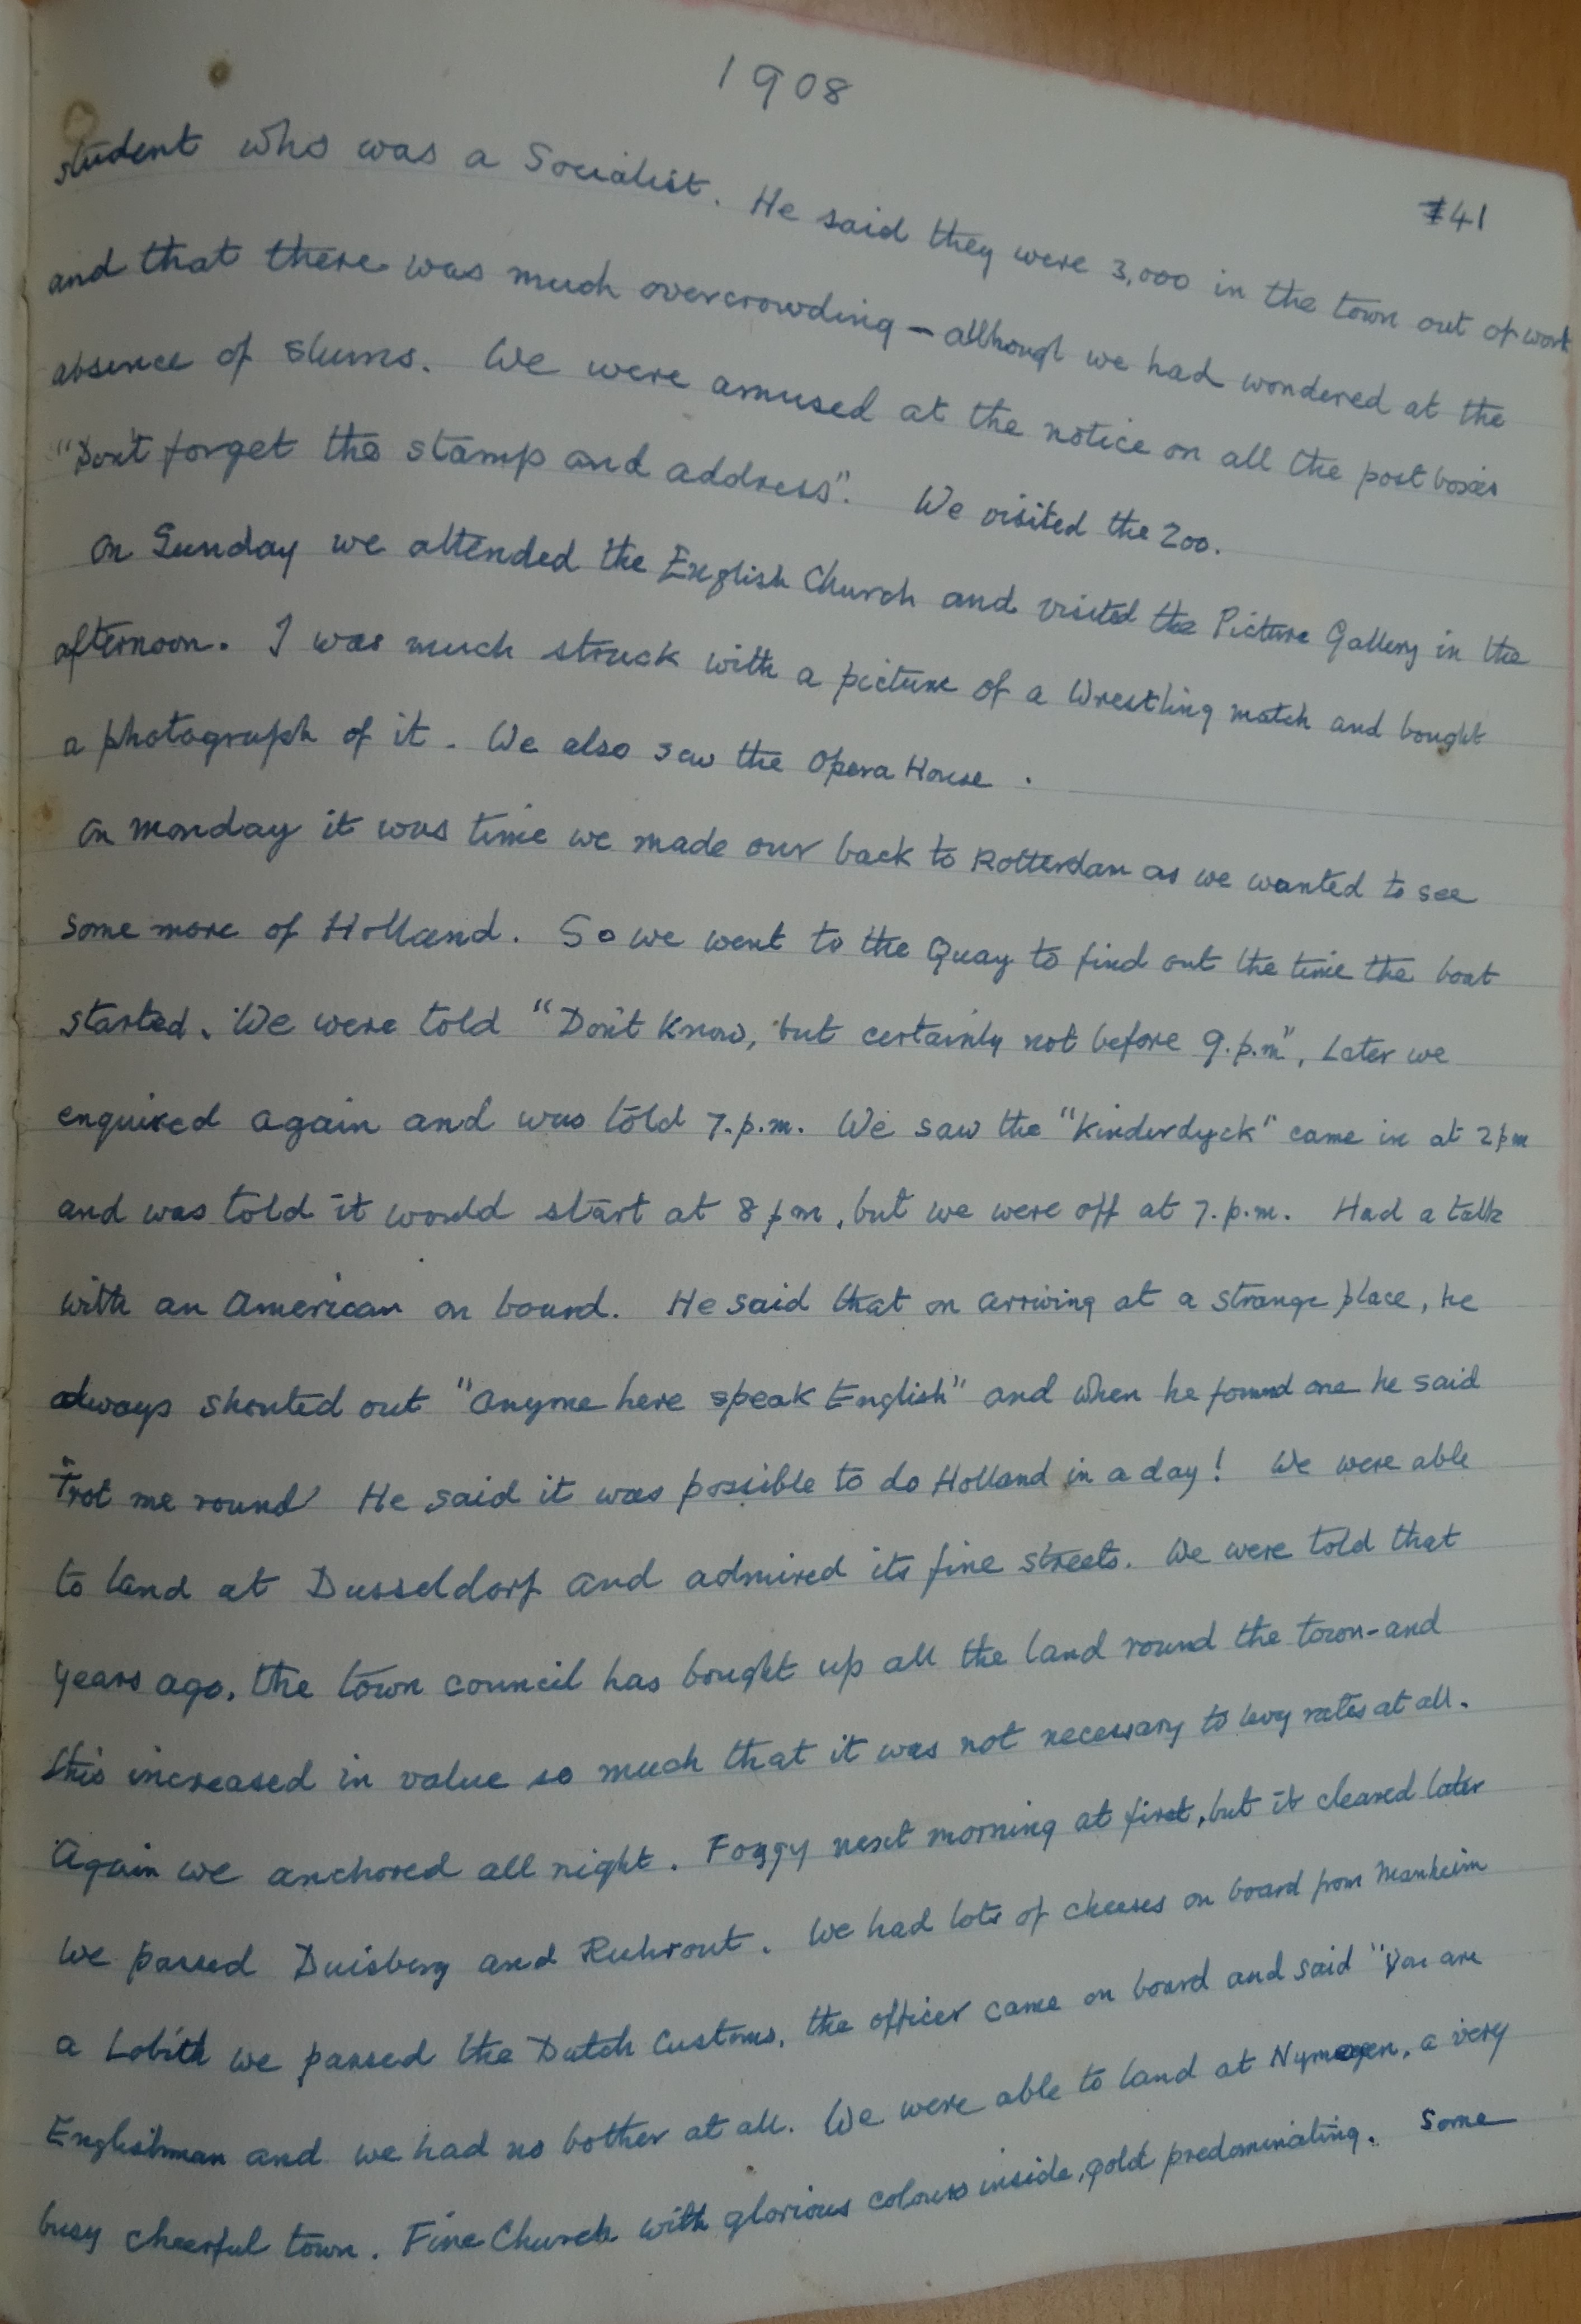 1908
141
student who was a Socialist. He said they were 3,000 in the town out of work
and that there was much overcrowding - although we had wondered at the
absence of slums. We were amused at the notice on all the post boxes
"Don't forget the stamp and address". We visited the Zoo.
On Sunday we attended the English Church and visited the Picture Gallery in the
afternoon. I was much struck with a picture of a Wrestling match and bought
a photograph of it. We also saw the Opera House.
On Monday it was time we made our back to Rotterdam as we wanted to see
some more of Holland. So we went to the Quay to find out the time the boat
started. We were told "Don't know, but certainly not before 9.p.m", Later we
enquired again and was told 7.p.m. We saw the "Kinderdyck" came in at 2pm
and was told it would start at 8 pm, but we were off at 7.p.m. Had a talk
with an American on bound. He said that on arriving at a strange place, he
always shouted out "Anyone here speak English" and when he found one he said
"Trot me round' He said it was possible to do Holland in a day! We were able
to land at Dusseldorf and admired its fine streets. We were told that
years ago, the town council has bought up all the land round the town-and
this increased in value so much that it was not necessary to levy rates at all.
Again we anchored all night. Foggy next morning at first, but it cleared later
We passed Duisberg and Ruhrout. We had lots of cheeses on board from Manheim
a Lobith we passed the Dutch Customs, the officer came on board and said "You are
Englishman and we had no bother at all. We were able to land at Nymegen, a very
busy cheerful town. Fine Church with glorious colours inside, gold predominating. Some